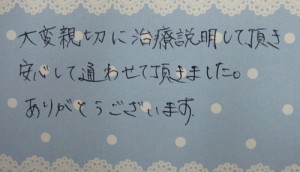 大変親切に治療説明して頂き
安心して通わせて頂きました。
ありがとうございます.